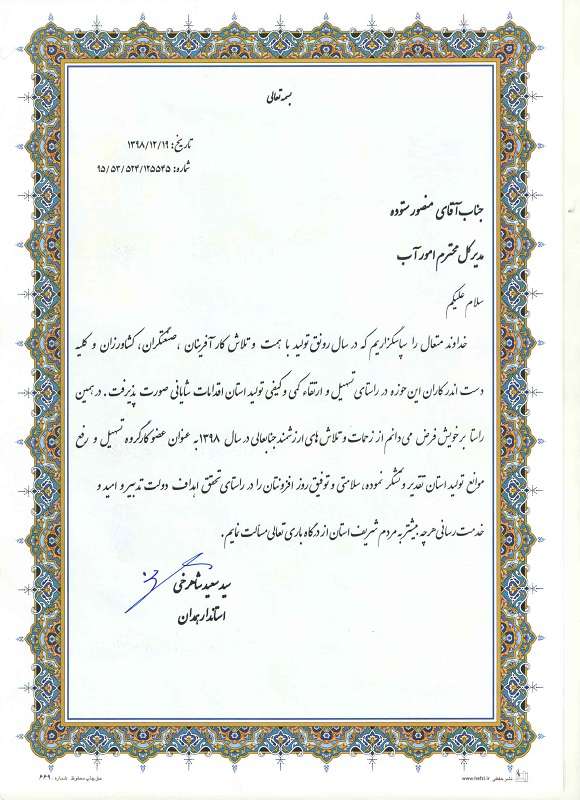 بسمه تعالی
تاریخ: ۱۳۹۸/۱۲/۱۹
شماره: ۹۵/۵۳/۵۲۴/۱۲۵۵۴۵
جناب آقای منصور ستوده
مدیر کل محترم امور آب
سلام علیکم
خداوند متعال را سپاسگزاریم که در سال رونق تولید با همت و تلاش کارآفرینان ، صنعتگران، کشاورزان و کلیه
دست اندرکاران این حوزه در راستای تسهیل و ارتقاء کمی و کیفی تولید استان اقدامات شایانی صورت پذیرفت . در همین
راستا بر خویش فرض می دانم از زحمات و تلاش های ارزشمند جنابعالی در سال ۱۳۹۸ به عنوان عضو کارگروه تسهیل و رفع
موانع تولید استان تقدیر و تشکر نموده، سلامتی و توفیق روز افزونتان را در راستای تحقق اهداف دولت تدبیر و امید و
خدمت رسانی هرچه بیشتر به مردم شریف استان از درگاه باری تعالی مسألت نمایم .
سید سعید شاهرخی
استاندار همدان
نشر هفتی www.hafti.ir
حق چاپ محفوظ شماره: ۶۶۹